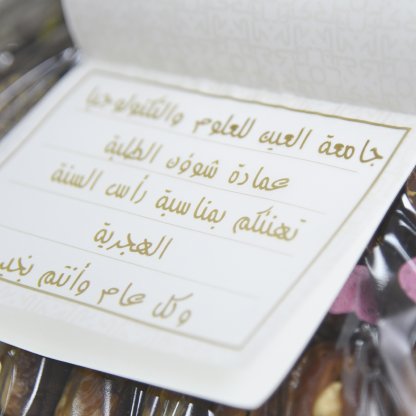 جامعة العين للعلوم والتكنولوجيا
عمادة شؤون الطلبة
تهنئكم بمناسبة رأس السنة
الهجرية
وكل عام وأنتم بخير